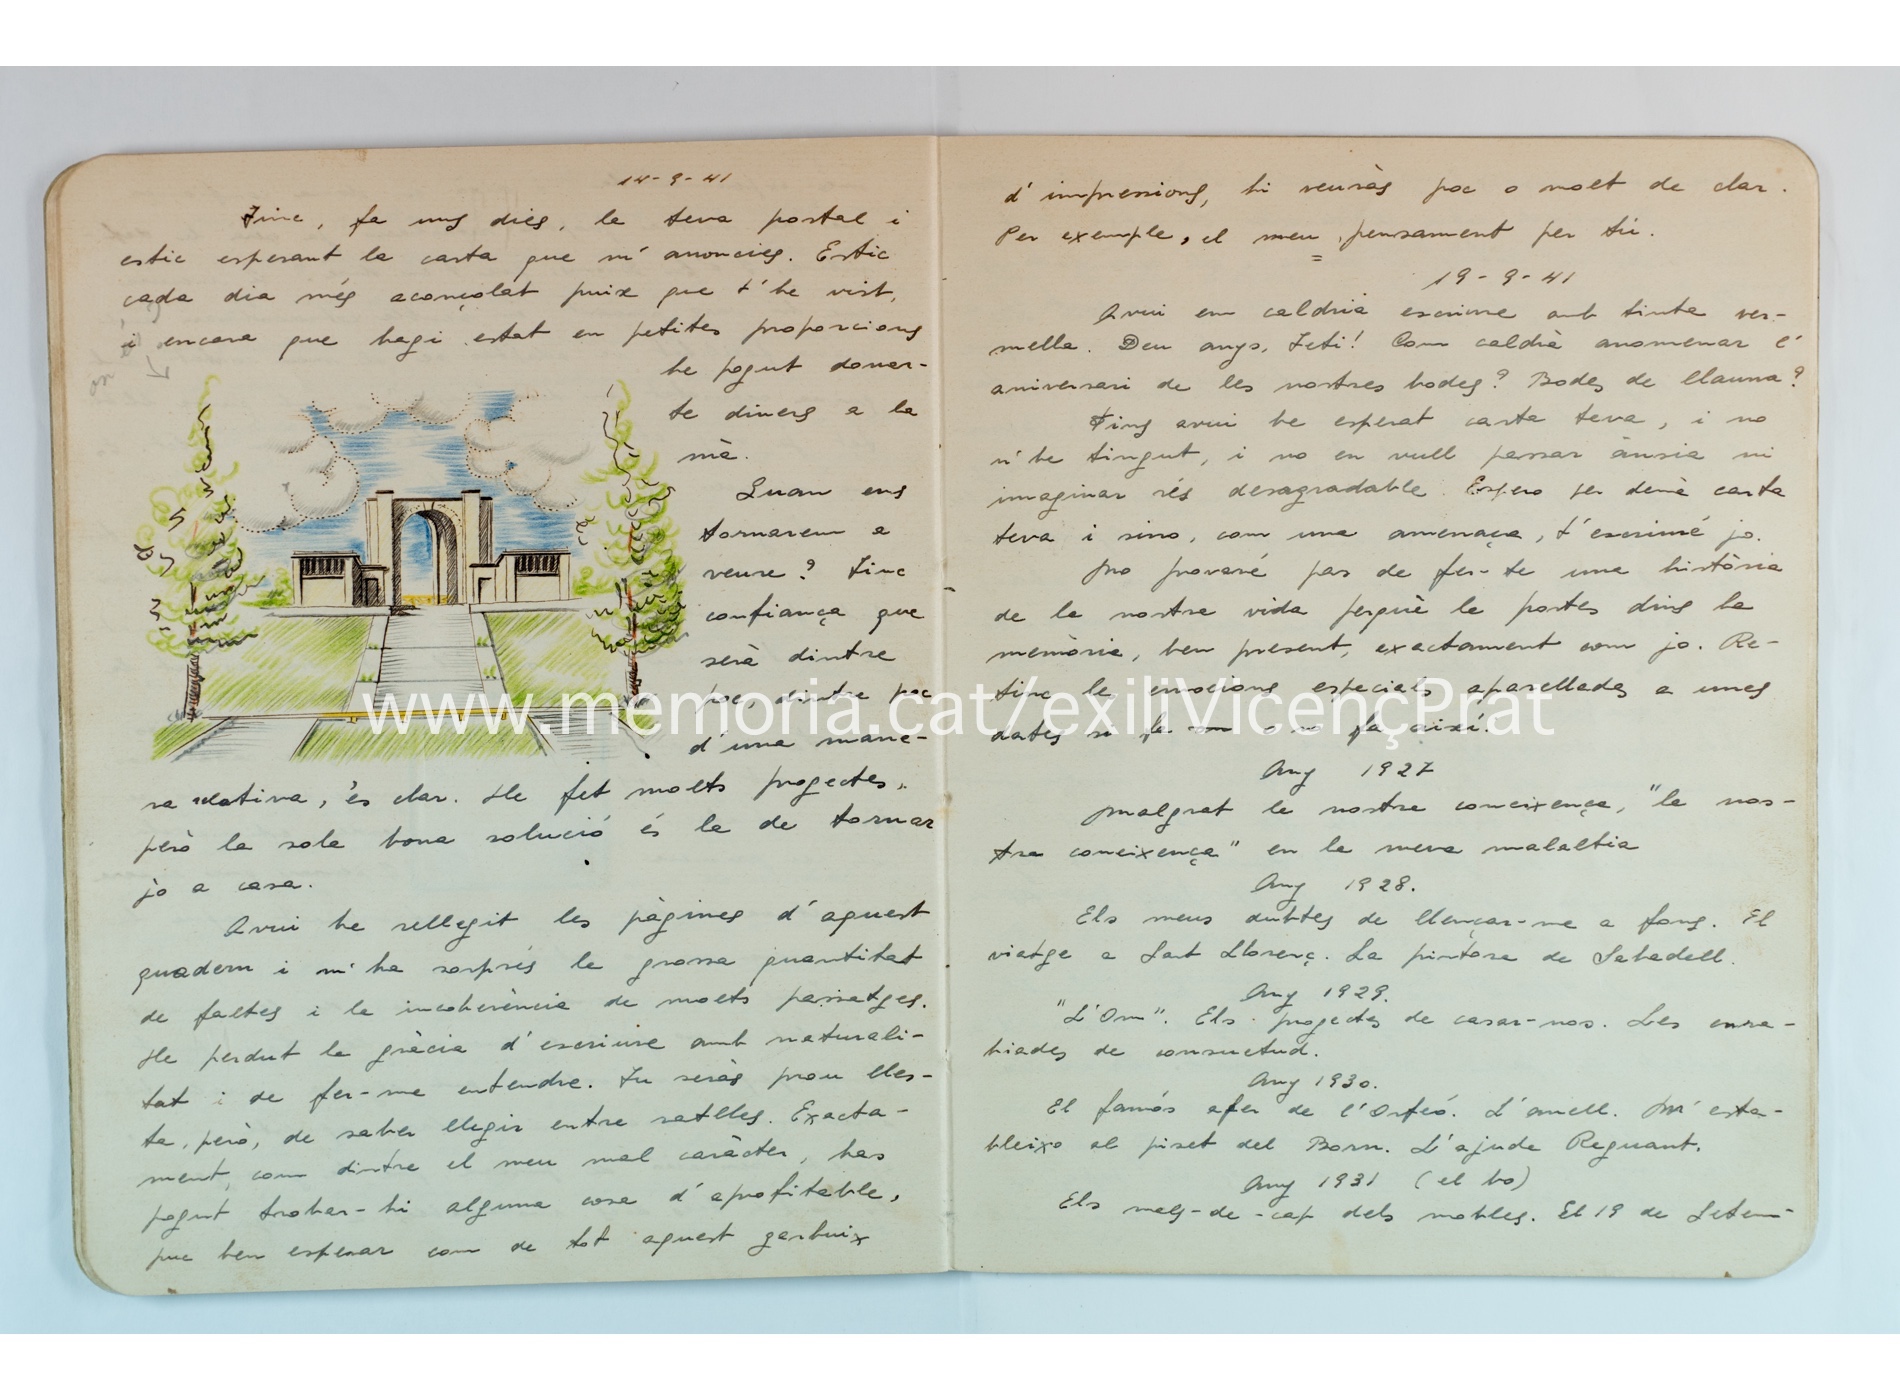 14-9-41
Tinc, fa uns dies, la teva postal i
estic esperant la carta que m'anoncies. Estic
cada dia més aconçolat puix que t'he vist,
i encara que hagi estat en petites proporcions
he pogut donar-
te diners a la
mà.
Quan ens
tornarem a
veure? Tinc
confiança que
serà dintre
poc, dintre poc
d'una mane-
ra relativa, és clar. He fet molts projectes,
però la sola bona solució és la de tornar
jo a casa.
Avui he rellegit les pàgines d'aquest
quadern i m'ha sorprés la grossa quantitat
de faltes i la incoherència de molts passatges.
He perdut la gràcia d'escriure amb naturali-
tat i de fer-me entendre. Tu seràs prou lles-
ta, però, de saber llegir entre ratlles. Exacta-
ment, com dintre el meu mal caràcter, has
pogut trobar-hi alguna cosa d'aprofitable,
puc ben esperar com de tot aquest garbuix
d'impressions, hi veuràs poc o molt de clar.
Per exemple, el meu pensament per tú.
19-9-41
Avui em caldria escriure amb tinta ver-
mella. Deu anys, Teti! Com caldrà anomenar l'
aniversari de les nostres bodes? Bodes de llauna?
Fins avui he esperat carta teva, i no
n'he tingut, i no en vull passar ànsia ni
imaginar rés desagradable. Espero per demà carta
teva i sino, com una amenaça, t'escriuré jo.
No provaré pas de fer-te una història
de la nostra vida perquè la portes dins la
memòria, ben present, exactament com jo. Re-
tinc les emocions especials aparellades a unes
dates si fa o no fa així:
Any 1927
Malgrat la nostra coneixença, "la nos-
tra coneixença" en la meva malaltia
Any 1928.
Els meus dubtes de llençar-me a fons. El
viatge a Sant Llorenç. La pintora de Sabadell.
Any 1929.
"L'Om". Els projectes de casar-nos. Les enra-
biades de consuetud.
Any 1930.
El famós afer de l'Orfeó. L'anell. M'esta-
bleixo al piset del Born. L'ajuda Reguant.
Any 1931 (el bo)
Els mals-de-cap dels mobles. El 19 de Setem-
www.memoria.cat/exiliVicençPrat